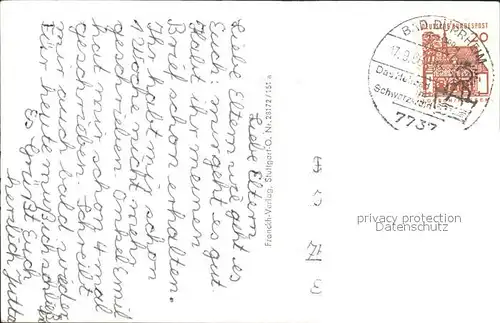 Liebe Eltern!
Liebe Eltern wie geht es
Euch; mir geht es gut.
Habt ihr meinen
Brief schon erhalten.
Ihr habt mir schon
1 Woche nicht mehr
geschrieben. Onkel Emil
hat mir schon 4 mal
geschrieben. Schreibt
mir auch bald wieder
Für heute muß ich schließen
Es Grüßt Euch
herzlich Jutta
Franckh-Verlag, Stuttgart-O, Nr. 28172/151a
BAD DÜRRHEIM
DEUTSCHE BUNDESPOST
20
Das Heil
Schwarzwald
7737
privacy protection
Datenschutz